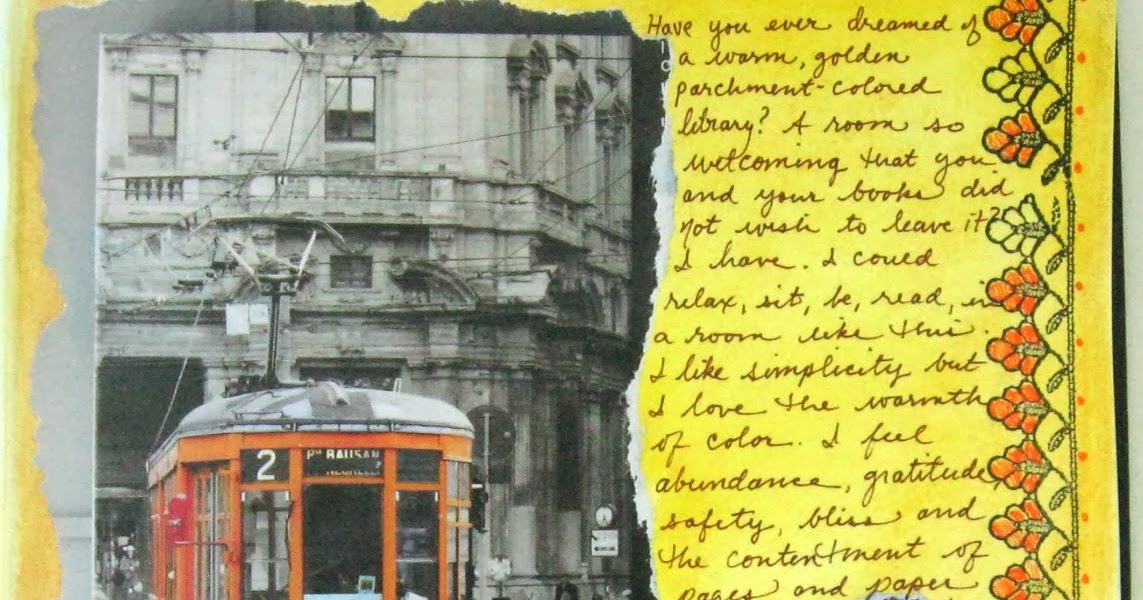 Have you ever dreamed of
a warm, golden
parchment-colored
library? A room so
welcoming that you
and your books did
not wish to leave it?
I have. I could
relax, sit, be, read, in
a room like this.
I like simplicity but
I love the warmth
of color. I feel
abundance, gratitude
safety, bliss and
the contentment of
pages and paper
2
Pta BAUSAN